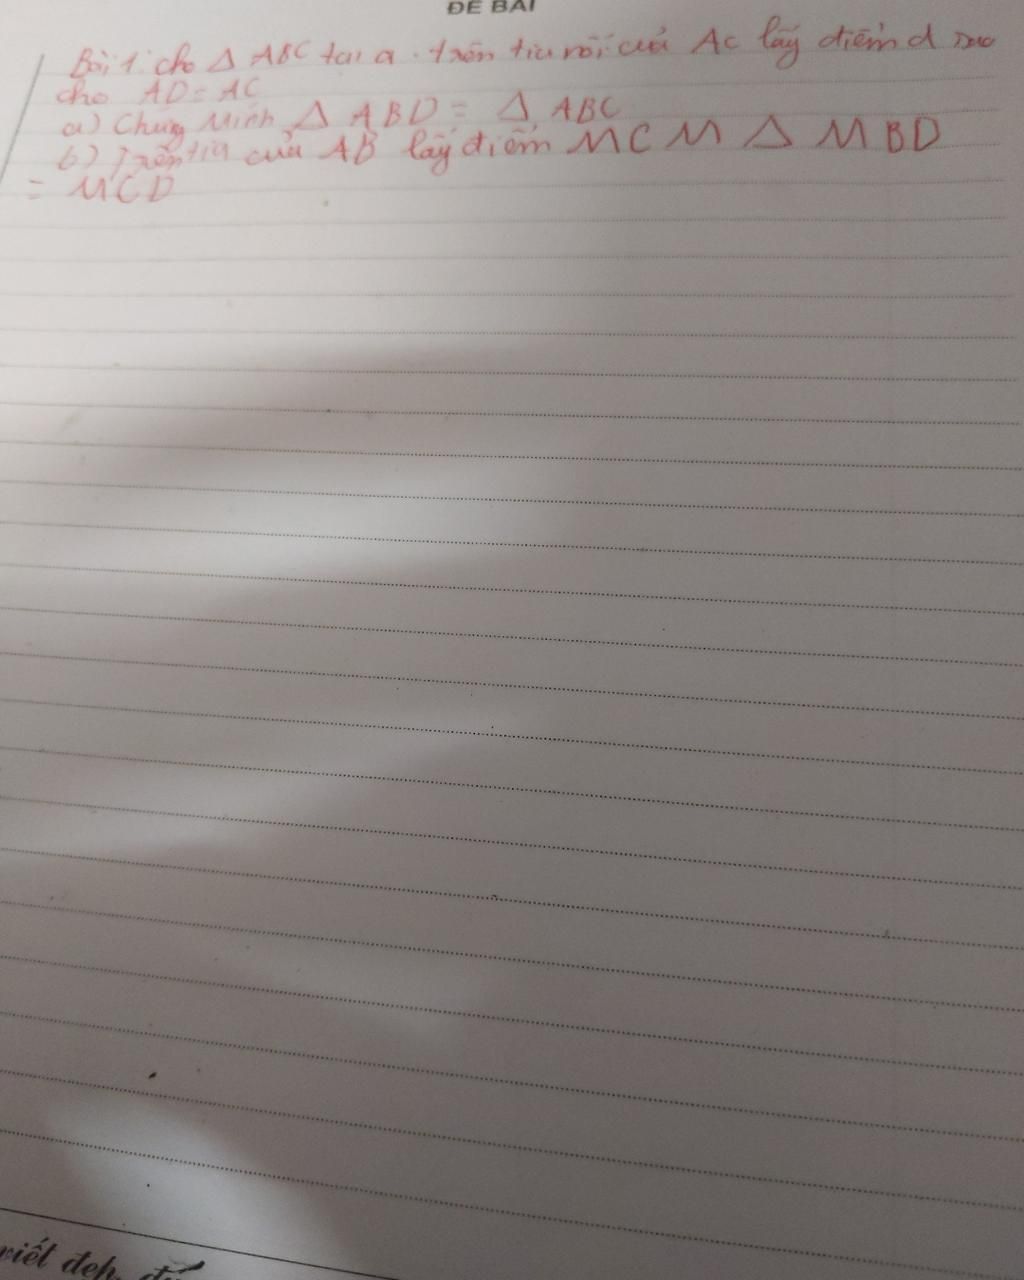 ĐỀ BÀI
Bài 1: cho Δ ABC tại a. trên tia rối của Ac lấy điểm d sao
cho AD = AC
a) Chứng Minh Δ ABD = Δ ABC
b) Trên tia của AB lấy điểm M C M Δ MBD
= MCD
viết đẹp,